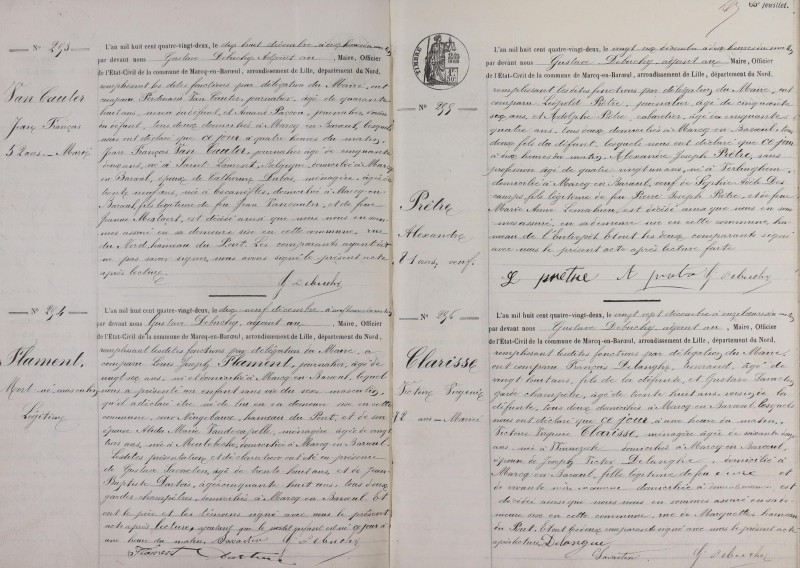 N° 293
Van Cauter
Jean François
52 ans - Marié
L'an mil huit cent quatre-vingt-deux, le dix huit décembre à onze heures du matin
par devant nous Gustave Debuchy adjoint au Maire, Officier
de l'Etat-Civil de la commune de Marcq-en-Barœul, arrondissement de Lille, département du Nord,
remplissant les dites fonctions par délégation du Maire, ont
comparu Ferdinand Van Cauter, journalier, âgé de quarante
huit ans, neveu du défunt, et Amand journalier, voisin
du défunt, tous deux domiciliés à Marcq en Barœul, lesquels
nous ont déclaré que ce jour à quatre heures du matin,
Jean François Van Cauter, journalier âgé de cinquante
deux ans, né à Saint Laurent, Belgique, domicilié à Marcq
en Barœul, époux de Catherine Dubar, ménagère, âgée de
trente neuf ans, née à domiciliée à Marcq en
Barœul, fils légitime de feu Jean Vancauter, et de feu
Jeanne est décédé ainsi que nous nous en som
mes assuré en sa demeure sise en cette commune, rue
du Nord, hameau du Pont. Les comparants ayant dit
ne pas savoir signer, nous avons signé le présent acte
après lecture.
G Debuchy
N° 294
Flament.
Mort-né masculin
Légitime
L'an mil huit cent quatre-vingt-deux, le dix neuf décembre à onze heures du matin
par devant nous Gustave Debuchy, adjoint au Maire, Officier
de l'Etat-Civil de la commune de Marcq-en-Barœul, arrondissement de Lille, département du Nord,
remplissant lesdites fonctions par délégation du Maire, a
comparu Louis Joseph Flament, journalier, âgé de
vingt six ans, né et domicilié à Marcq en Barœul, lequel
nous a présenté un enfant sans vie du sexe masculin,
qu'il a déclaré être né de lui en sa demeure sise en cette
commune, rue hameau du Pont, et de son
épouse Marie ménagère âgée de vingt
trois ans, née à Meulebeke, domiciliée à Marcq en Barœul.
Lesdites présentation et déclaration ont été en présence
de Gustave Savaetin, âgé de trente huit ans, et de Jean
Baptiste Dutois, âgé cinquante huit ans, tous deux
gardes champêtres, domiciliés à Marcq en Barœul. Et
ont le père et les témoins signé avec nous le présent
acte après lecture, ajoutant que le est né ce jour à
une heure du matin. Savaetin G Debuchy
Flament
65e feuillet.
TIMBRE
N° 295
Prêtre
Alexandre
81 ans, veuf.
L'an mil huit cent quatre-vingt-deux, le vingt six décembre à dix heures du matin
par devant nous Gustave Debuchy adjoint au Maire, Officier
de l'Etat-Civil de la commune de Marcq-en-Barœul, arrondissement de Lille, département du Nord,
remplissant lesdites fonctions par délégation du Maire, ont
comparu Léopold Prêtre, journalier, âgé de cinquante
six ans, et Adolphe Prêtre, cabaretier, âgé de cinquante
quatre ans, tous deux domiciliés à Marcq en Barœul, tous
deux fils du défunt, lesquels nous ont déclaré que ce jour
à six heures du matin, Alexandre Joseph Prêtre, sans
profession âgé de quatre vingt un ans, né à Verlinghem,
domicilié à Marcq en Barœul, veuf de Sophie Des
camps, fils légitime de feu Pierre Joseph Prêtre, et de feu
Marie Anne est décédé ainsi que nous nous en som
mes assuré, en sa demeure sise en cette commune, ha
meau de l'Entrepôt. Et ont les deux comparants signé
avec nous le présent acte après lecture faite
L prêtre A prêtre G Debuchy
N° 296
Clarisse
Victoire Virginie
72 ans - Mariée
L'an mil huit cent quatre-vingt-deux, le vingt sept décembre à onze heures du matin
par devant nous Gustave Debuchy, adjoint au Maire, Officier
de l'Etat-Civil de la commune de Marcq-en-Barœul, arrondissement de Lille, département du Nord,
remplissant lesdites fonctions par délégation du Maire,
ont comparu François Delanghe, tisserand, âgé de
vingt huit ans, fils de la défunte, et Gustave Savaetin
garde champêtre, âgé de trente huit ans, voisin de la
défunte, tous deux domiciliés à Marcq en Barœul, lesquels
nous ont déclaré que ce jour à une heure du matin,
Victoire Virginie Clarisse, ménagère âgée de soixante douze
ans, née à domiciliée à Marcq en Barœul,
épouse de Joseph Victor Delanghe domicilié à
Marcq en Barœul, fille légitime de
et de est
décédée ainsi que nous nous en sommes assuré en sa de
meure sise en cette commune, rue de Marquette, hameau
du Pont. Et ont les deux comparants signé avec nous le présent acte
après lecture Delangue
Savaetin G Debuchy